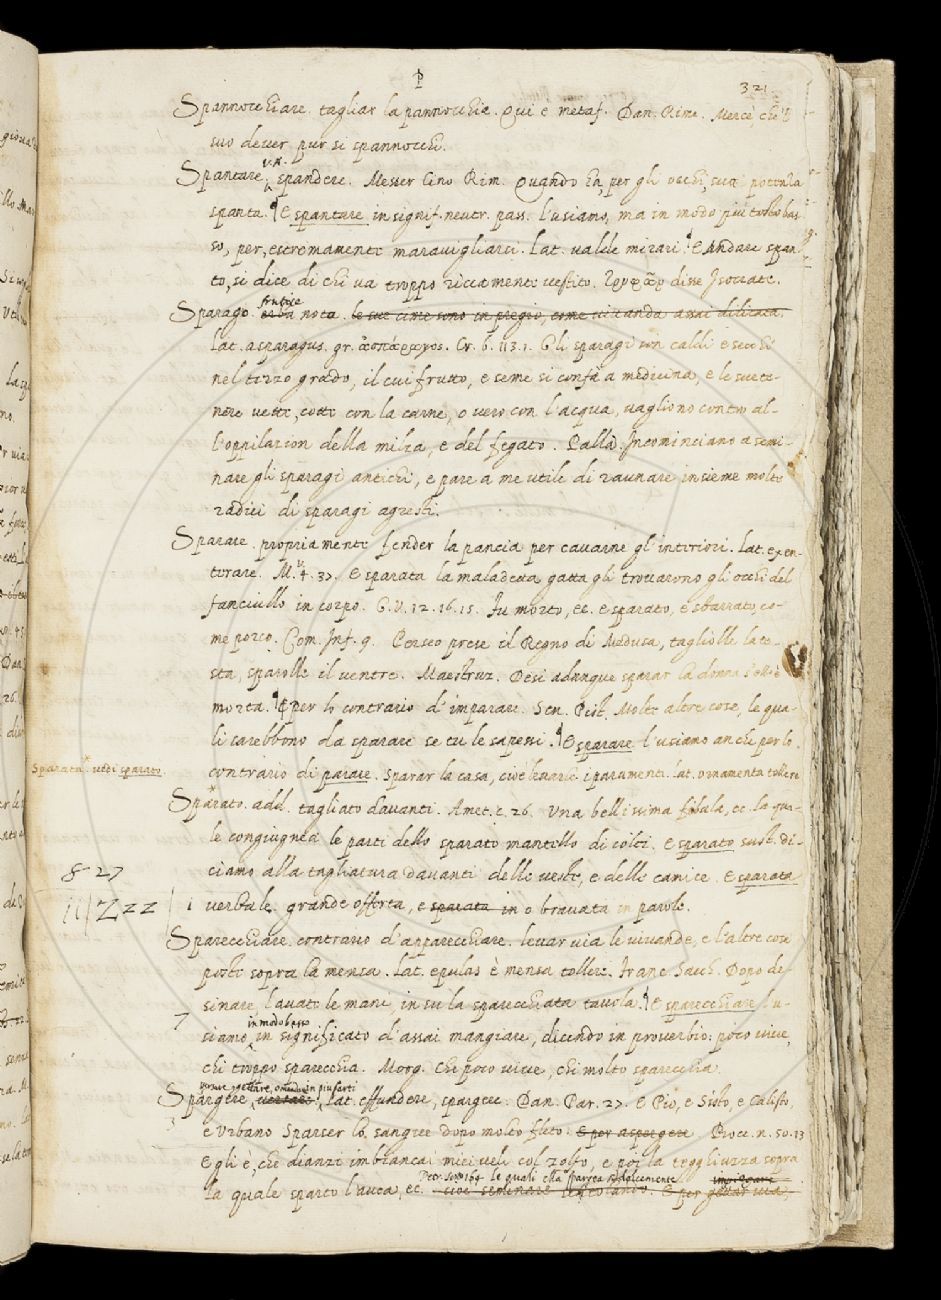 P
321
Spannocchiare. tagliar la pannocchia. Qui è metaf. Dan. Rime. Mercè, che 'l
suo dever pur si spannocchi.
Spantare, v.A. spandere. Messer Cino Rim. Quando ha per gli occhi sua potenza
spanta. ¶ E spantare in signif. neutr. pass. l'usiamo, ma in modo più tosto bas
so, per, estremamente maravigliarsi. Lat. valde mirari. ¶ E Andare span
to, si dice di chi va troppo riccamente vestito. disse Isocrate.
Sparago. frutice erba nota. le sue cime sono in pregio, come vivanda assai dilicata.
Lat. asparagus. gr. ἀσπάραγος. Cr. 6. 113. 1. Gli sparagi son caldi e secchi
nel terzo grado, il cui frutto, e seme si confà a medicina, e le sue te-
nere vette, cotte con la carne, o vero con l'acqua, vagliono contro al-
l'oppilazion della milza, e del fegato. Pallad. Incominciano a semi-
nare gli sparagi antichi, e pare a me utile di raunare insieme molte
radici di sparagi agresti.
Sparare. propriamente fender la pancia per cavarne gl'interiori. Lat. exen-
terare. M.V. 4. 37. E sparata la maladetta gatta gli trovarono gli occhi del
fanciullo in corpo. G.V. 12. 16. 15. Fu morto, ec. e sparato, e sbarrato, co-
me porco. Com. Inf. 9. Perseo prese il Regno di Medusa, tagliolle la te-
sta, sparolle il ventre. Maestruz. Desi adunque sparar la donna s'ell'è
morta. ¶ E per lo contrario d'imparare. Sen. Pist. Molte altre cose, le qua-
li sarebbono da sparare se tu le sapessi. ¶ E sparare l'usiamo anche per lo
Sparata* vedi sparato.
contrario di parare. Sparar la casa, cioè levarne i paramenti. Lat. ornamenta tollere
Sparato. add. tagliato davanti. Amet. c. 26. Una bellissima fibula, ec. la qua-
le congiugnea le parti dello sparato mantello di colei. E sparato sust. di-
ciamo alla tagliatura davanti delle veste, e delle camice. E sparata
827
Zzz
verbale. grande offerta, e sparata in o bravata in parole.
Sparecchiare. contrario d'apparecchiare. levar via le vivande, e l'altre cose
poste sopra la mensa. Lat. epulas è mensa tollere. Franc. Sacch. Dopo de-
sinare, lavate le mani, in su la sparecchiata tavola. ¶ E sparecchiare l'u-
7
siamo in modo basso in significato d'assai mangiare, dicendo in proverbio: poco vive,
chi troppo sparecchia. Morg. Chi poco vive, chi molto sparecchia.
Spargere. versare, gettare, o mandare in più parti Lat. effundere, spargere. Dan. Par. 27. E Pio, e Sisto, e Calisto,
e Urbano Sparser lo sangue dopo molto fleto. E per aspergere Bocc. n. 50. 13
Egli è, che dianzi imbiancai miei veli col zolfo, e poi la tegghiuzza sopra
la quale sparto l'avea, ec. Petr. Son. 164. le quali ella spargea sì dolcemente cioè seminare E per gettar via,